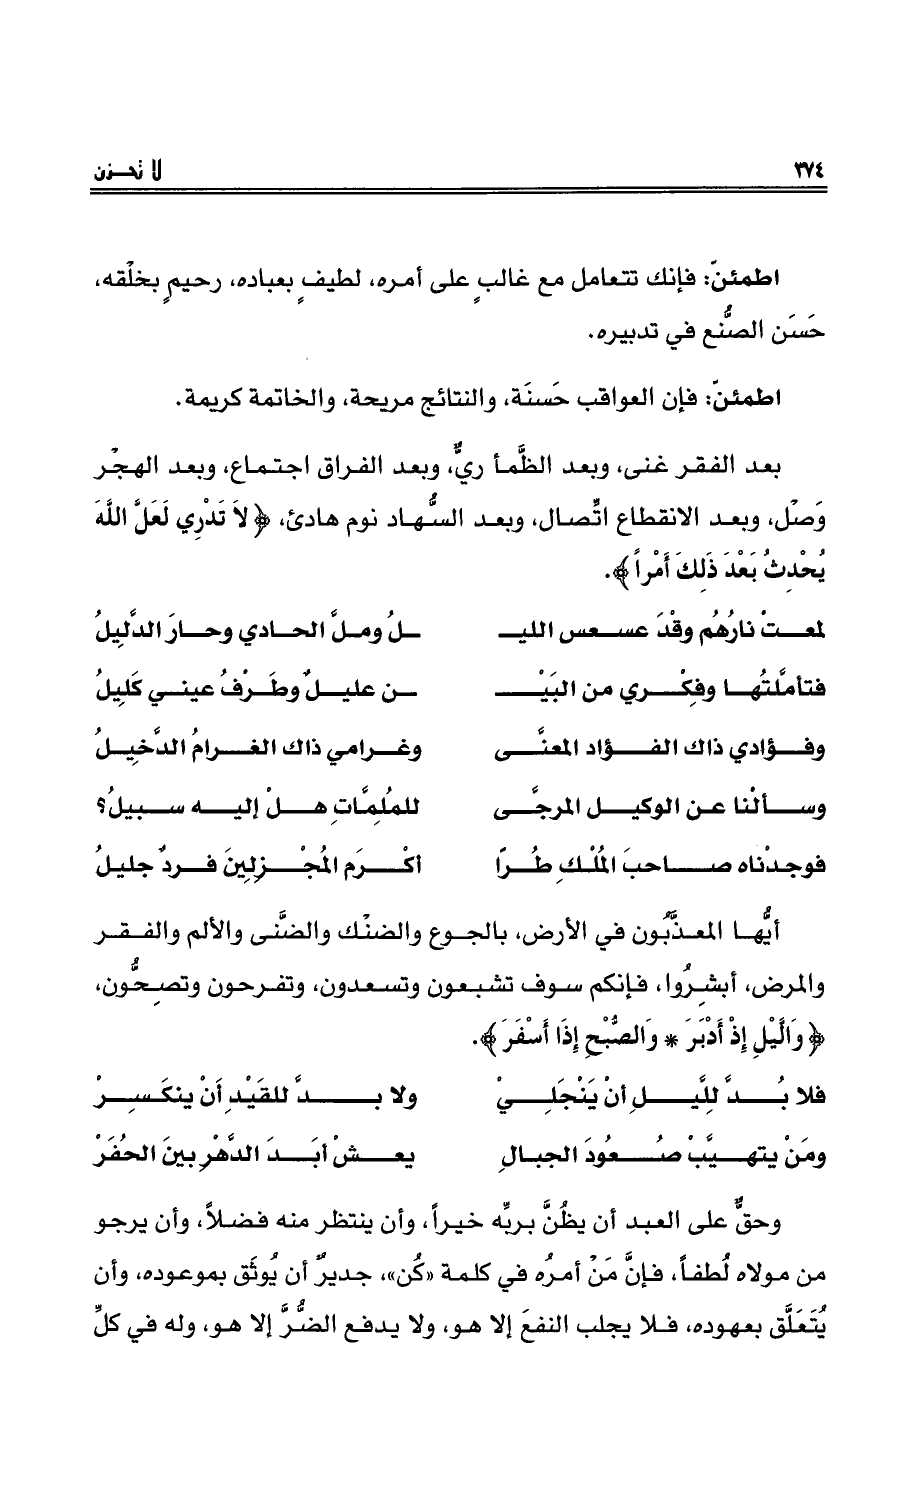 ٣٧٤ لا تحـزن
اطمئنّ: فإنك تتعامل مع غالبٍ على أمره، لطيفٍ بعباده، رحيمٍ بخلْقه،
حَسَن الصُّنع في تدبيره.
اطمئنّ: فإن العواقب حَسنَة، والنتائج مريحة، والخاتمة كريمة.
بعد الفقر غنى، وبعد الظَّمأ ريٌّ، وبعد الفراق اجتماع، وبعد الهجْر
وَصْل، وبعد الانقطاع اتِّصال، وبعد السُّهاد نوم هادئ، ﴿لاَ تَدْرِي لَعَلَّ اللَّهَ
يُحْدِثُ بَعْدَ ذَلِكَ أَمْراً﴾.
لمعتْ نارُهُم وقدْ عسعس الليـ ـلُ وملَّ الحادي وحارَ الدَّليلُ
فتأملَّتُها وفكْري من البَيْـ ـن عليلٌ وطَرْفُ عيني كَليلُ
وفؤادي ذاك الفؤاد المعنَّى وغرامي ذاك الغرامُ الدَّخيلُ
وسألْنا عن الوكيل المرجَّى للمُلمَّاتِ هلْ إليه سبيلُ؟
فوجدْناه صاحبَ المُلْكِ طُراً أكْرَم المُجْزلِينَ فردٌ جليلُ
أيُّها المعذَّبُون في الأرض، بالجوع والضنْك والضنَّى والألم والفقر
والمرض، أبشرُوا، فإنكم سوف تشبعون وتسعدون، وتفرحون وتصحُّون،
﴿وَالَّيْلِ إِذْ أَدْبَرَ * وَالصُّبْحِ إِذَا أَسْفَرَ﴾.
فلا بُدَّ للَّيلِ أنْ يَنْجَلِيْ ولا بدَّ للقَيْدِ أَنْ ينكَسِرْ
ومَنْ يتهيَّبْ صُعُودَ الجبالِ يعشْ أبَدَ الدَّهْرِ بينَ الحُفَرْ
وحقٌّ على العبد أن يظُنَّ بربِّه خيراً، وأن ينتظر منه فضلاً، وأن يرجو
من مولاه لُطفاً، فإنَّ مَنْ أمرُه في كلمة «كُن»، جديرٌ أن يُوثَق بموعوده، وأن
يُتَعَلَّق بعهوده، فلا يجلب النفعَ إلا هو، ولا يدفع الضُّرَّ إلا هو، وله في كلِّ